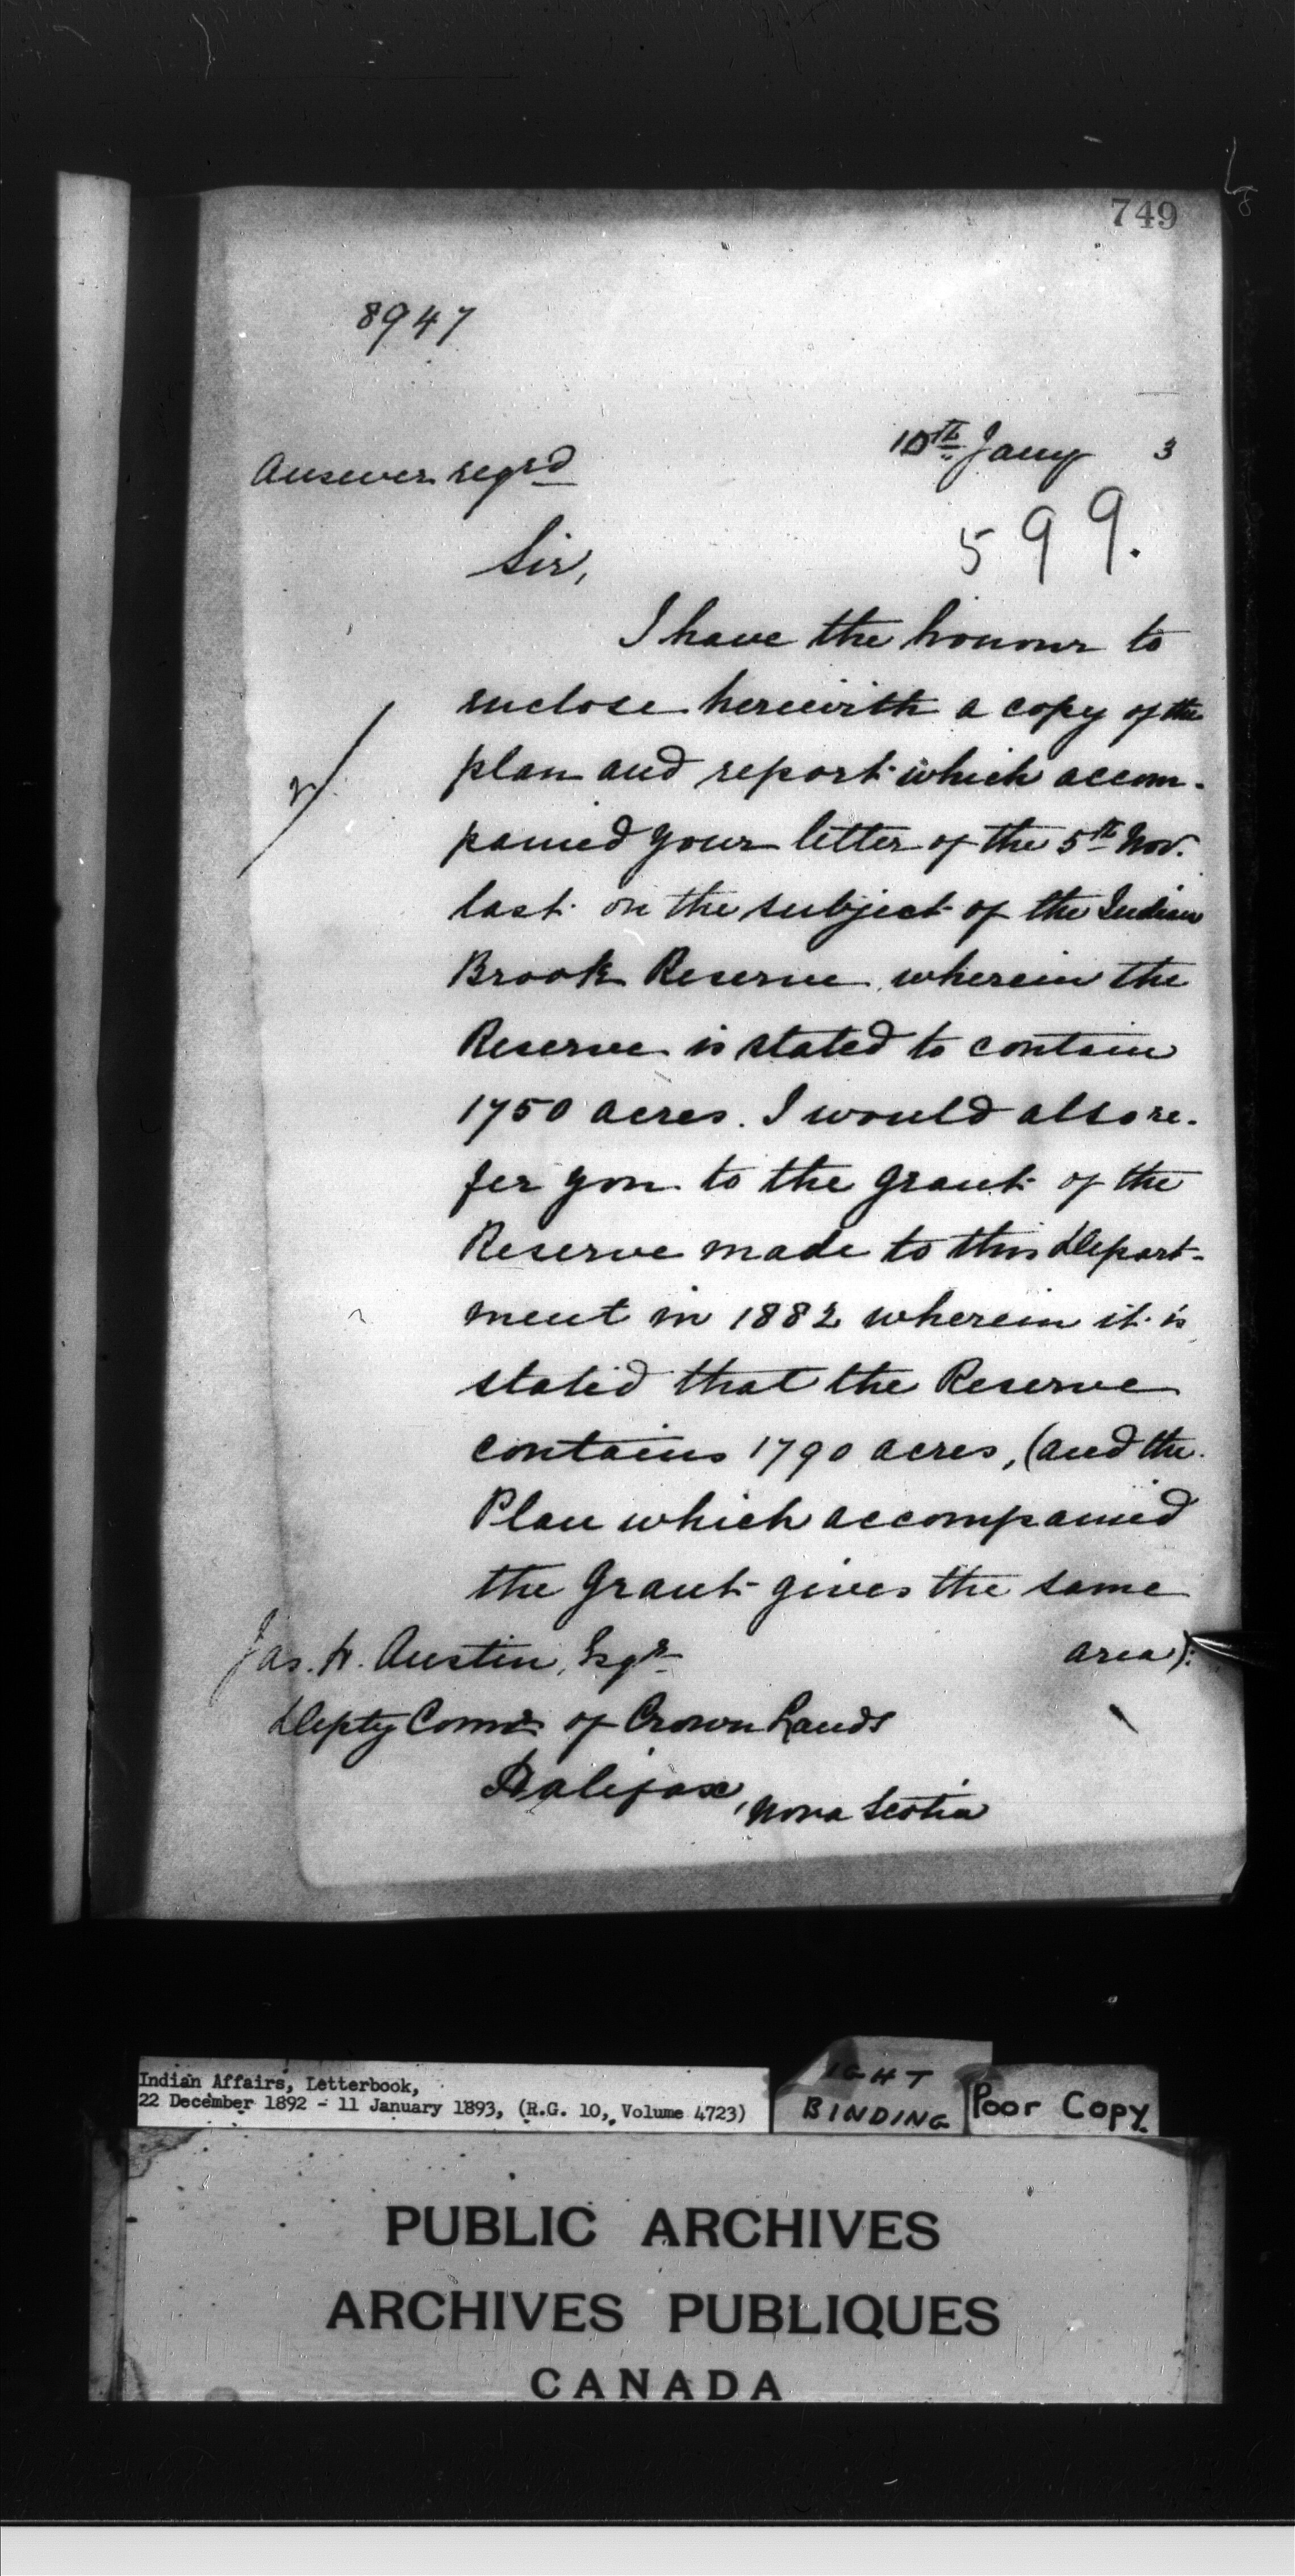 749
8947
10th Jany 3
Answer reqrd
599.
Sir,
I have the honour to
enclose herewith a copy of the
plan and report which accom-
panied your letter of the 5th Nov.
last on the subject of the Indian
Brook Reserve wherein the
Reserve is stated to contain
1750 acres. I would also re-
fer you to the Grant of the
Reserve made to this Depart-
ment in 1882 wherein it is
stated that the Reserve
contains 1790 acres, (and the
Plan which accompanied
the Grant gives the same
area).
Jas. H. Austin, Esqr
Depty Comr of Crown Lands
Halifax, Nova Scotia
Indian Affairs, Letterbook,
22 December 1892 - 11 January 1893, (R.G. 10, Volume 4723)
IGHT
BINDING
Poor Copy
PUBLIC ARCHIVES
ARCHIVES PUBLIQUES
CANADA